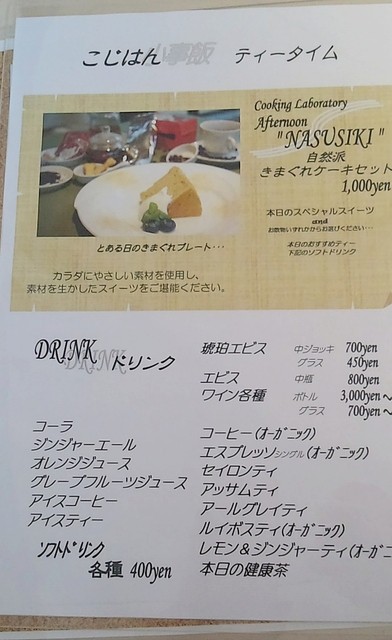 こじはん 小事飯 ティータイム
Cooking Laboratory
Afternoon
"NASUSIKI"
自然派
きまぐれケーキセット
1,000yen
本日のスペシャルスイーツ
and
お飲物いずれかからお選びください…
本日のおすすめティー
下記のソフトドリンク
とある日のきまぐれプレート・・・
カラダにやさしい素材を使用し、
素材を生かしたスイーツをご堪能ください。
DRINK ドリンク
琥珀エビス 中ジョッキ 700yen
グラス 450yen
エビス 中瓶 800yen
ワイン各種 ボトル 3,000yen～
グラス 700yen～
コーラ
ジンジャーエール
オレンジジュース
グレープフルーツジュース
アイスコーヒー
アイスティー
ソフトドリンク
各種 400yen
コーヒー(オーガニック)
エスプレッソシングル(オーガニック)
セイロンティ
アッサムティ
アールグレイティ
ルイボスティ(オーガニック)
レモン＆ジンジャーティ(オーガニ
本日の健康茶